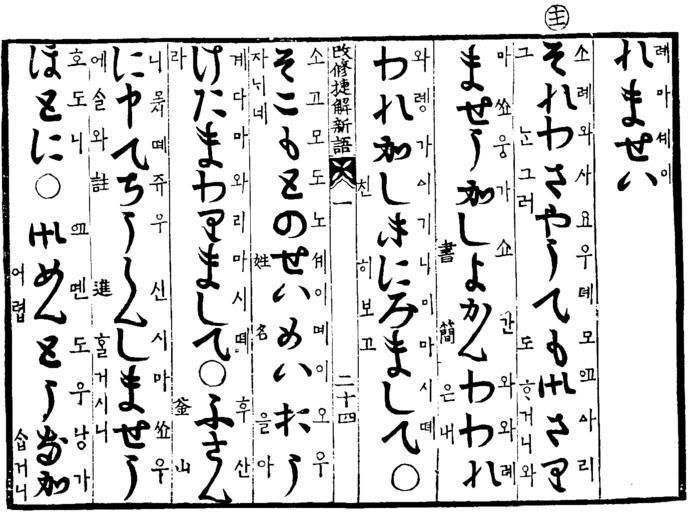 례마셰이
れませい
소례와사요우뎨모오사리
それわさやうても御さり
그 는 그러 도 ᄒᆞ거니와
마쑈웅가쇼간와와례
ませうかしよかんわわれ
書簡은내
와령가시기니미마시뗘
われかしきにみまして○
친히보고
改修捷解新語 一 二十四
소고모도노셰이몌이오우
そこもとのせいめいおう
자ᄂᆡ네 姓名을아
계다마와리마시뗘 후산
けたまわりまして○ふさん
라 釜山
니 뗴쥬우신시마쑈우
に申てちうしんしませう
에 술와註進홀거시니
호도니 오몐도우낭가
ほとに○御めんとうなか
어렵ᄉᆞᆸ거니